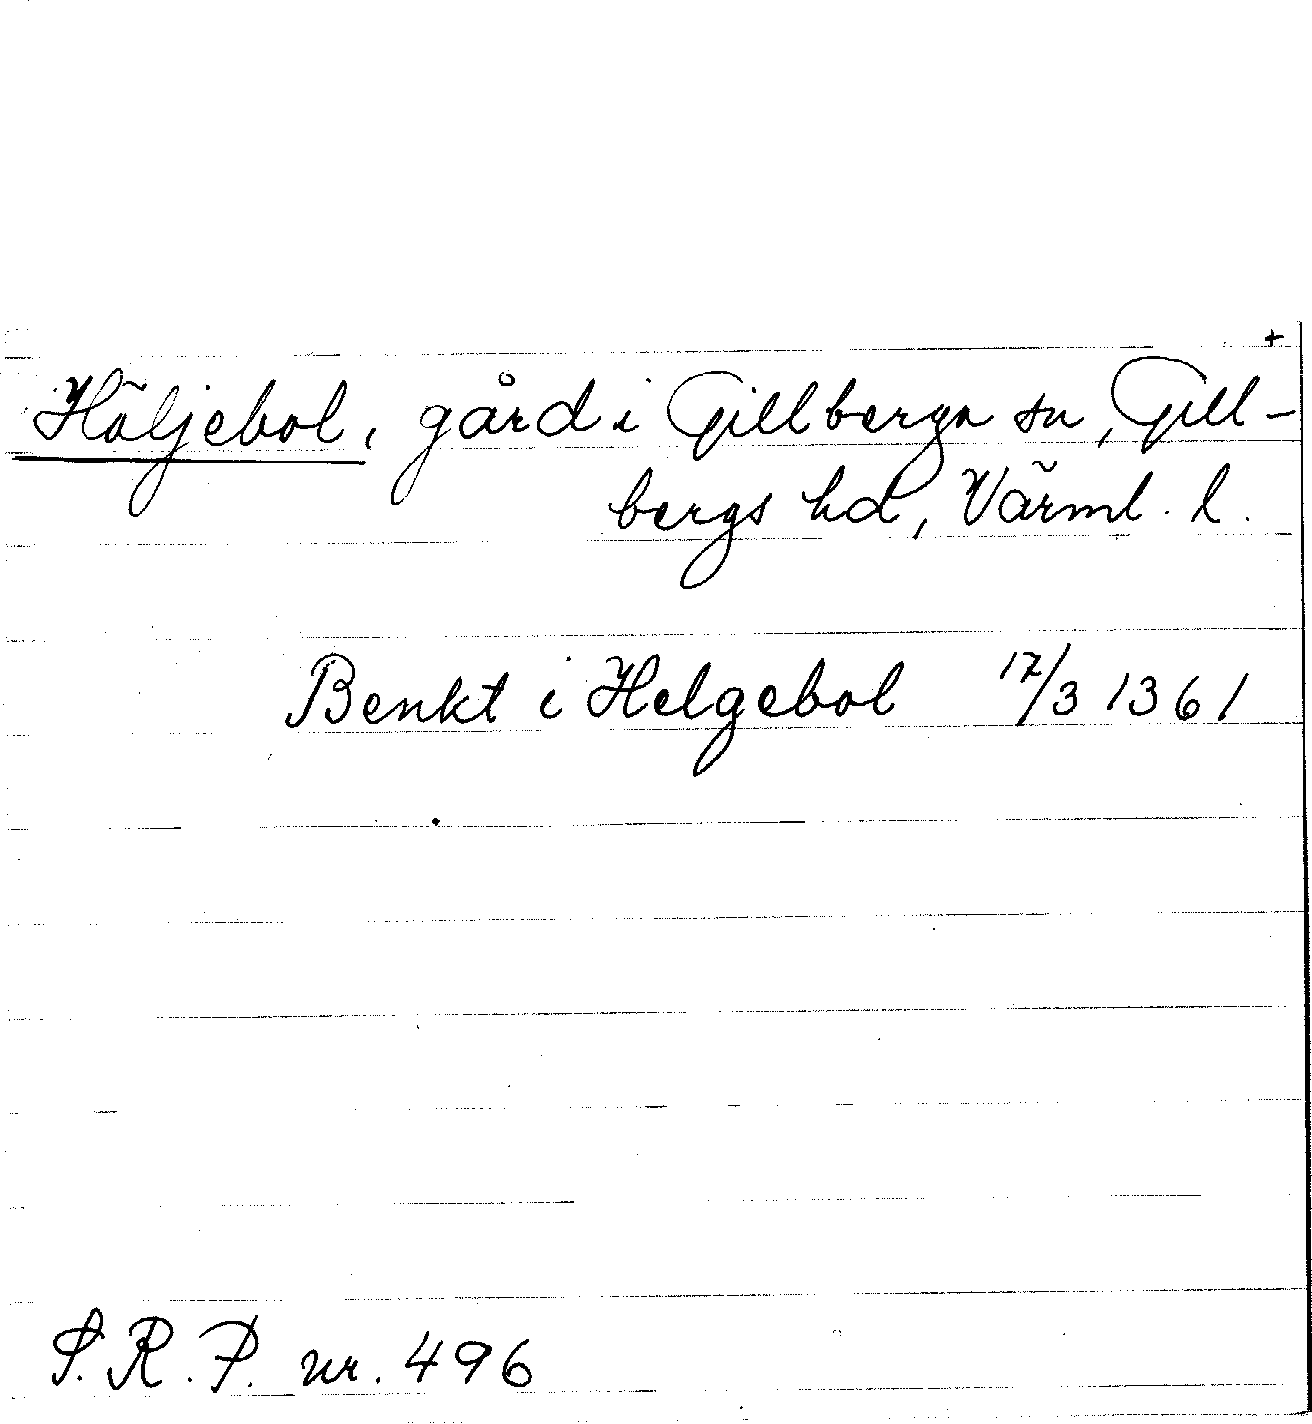 +
Häljebol, gård i Gillberga sn, Gill-
bergs hd, Värml. l.
Benkt i Helgebol 17/3 1361
S.R.P. nr. 496